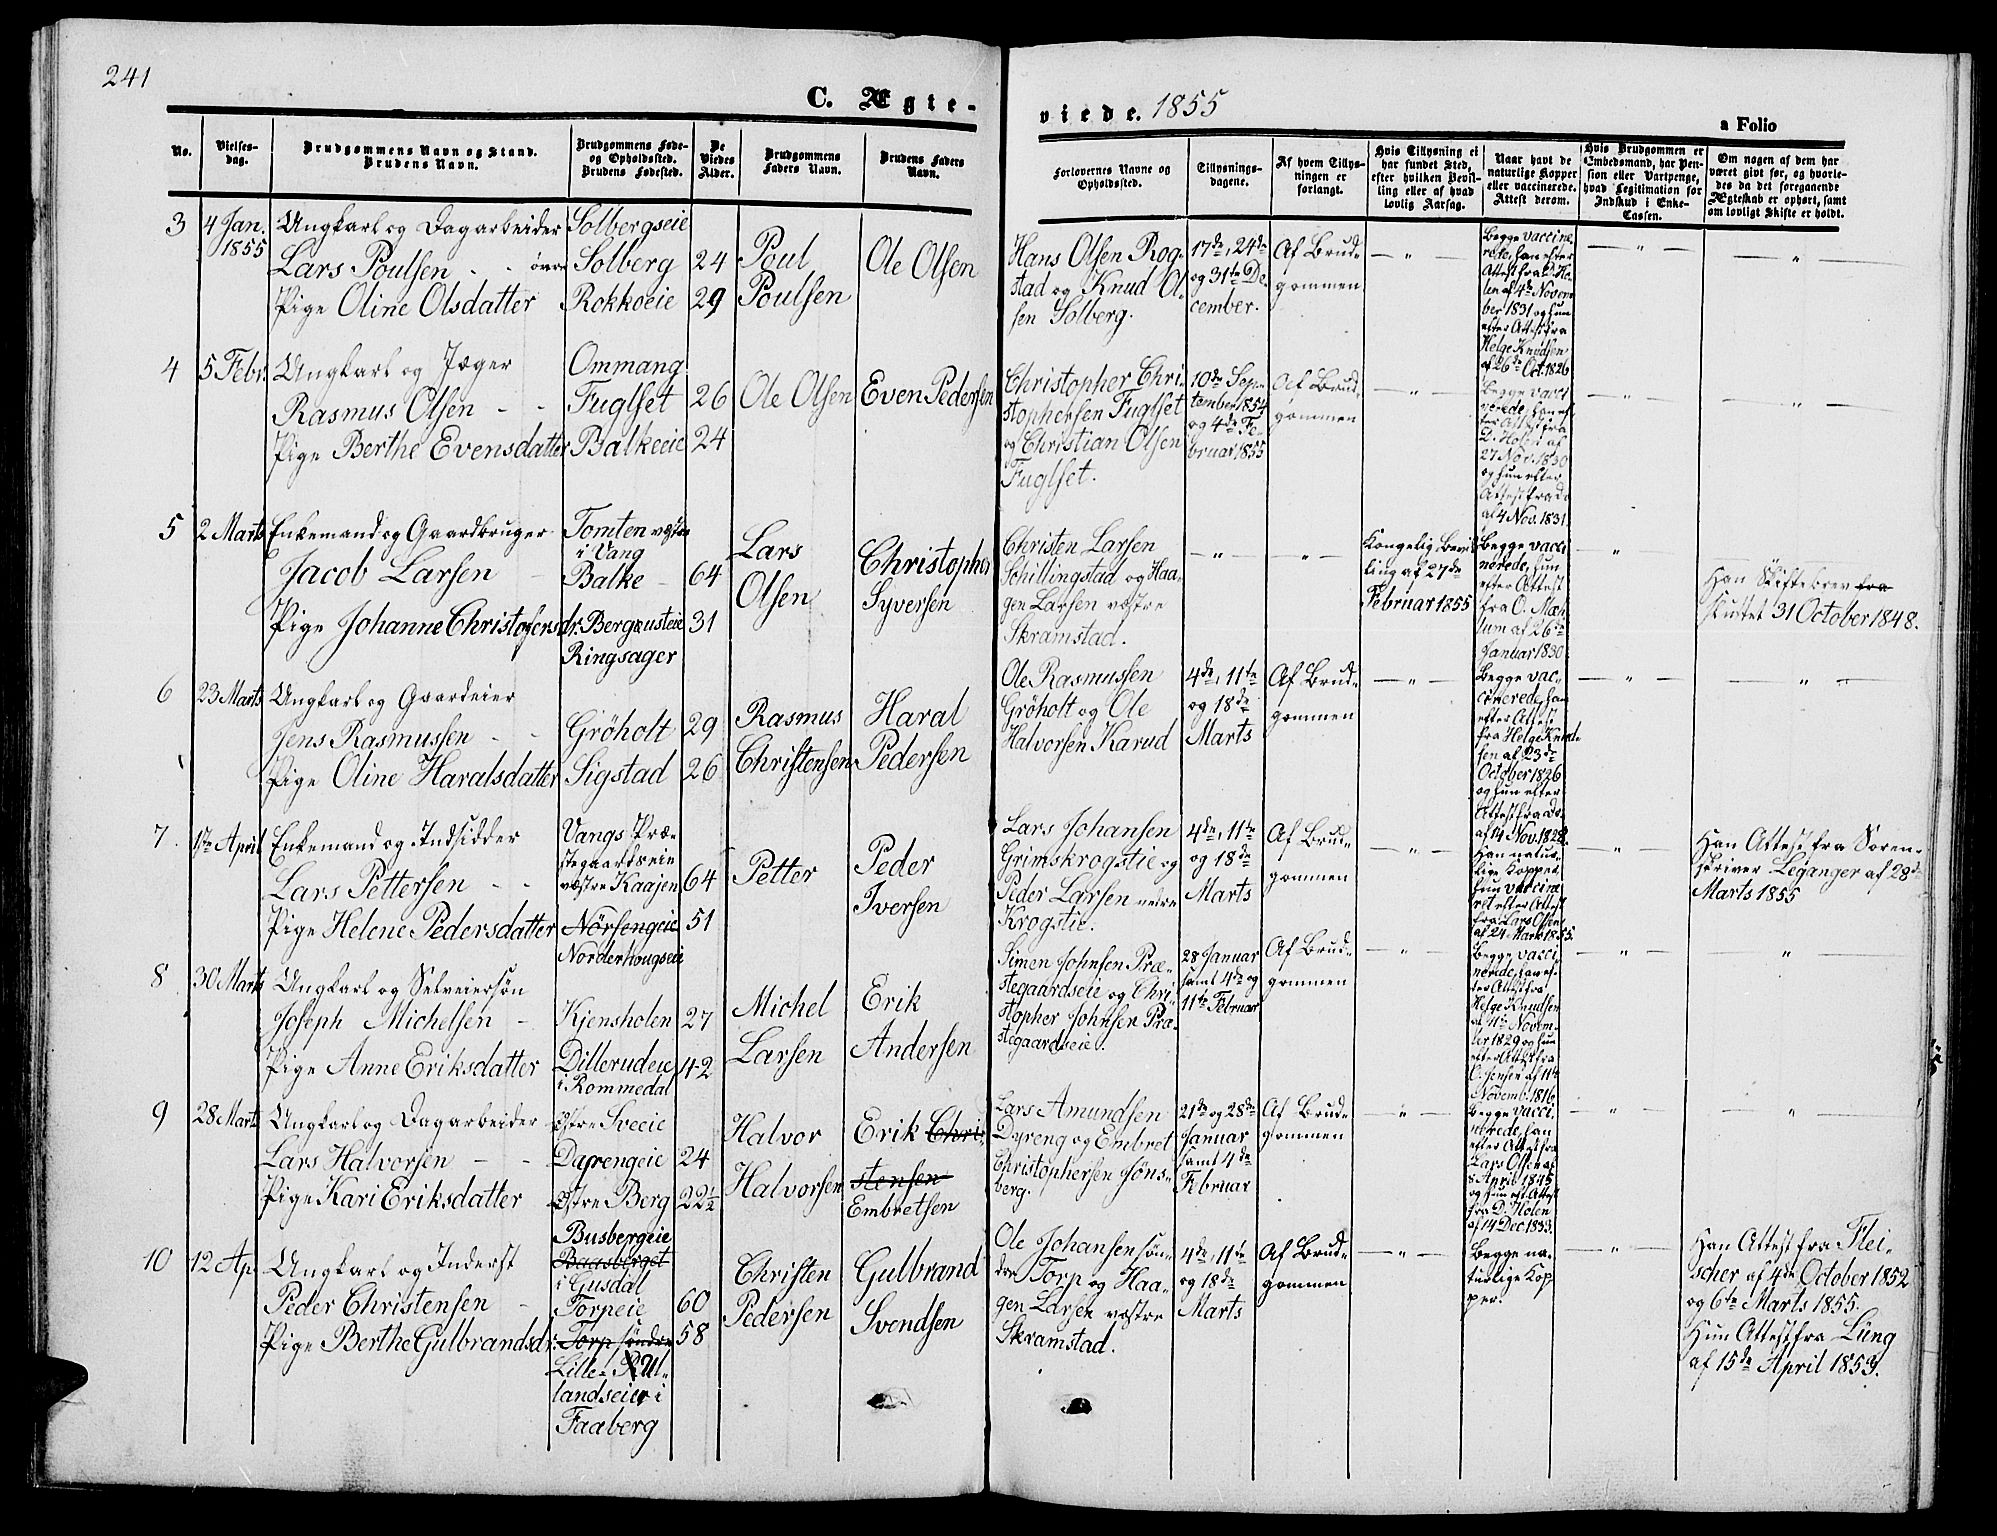 241
C. Ægte-
viede. 1855
a Folio
No.
Vielses-
dag.
Brudgommens Navn og Stand.
Brudens Navn.
Brudgommens Føde-
og Opholdssted.
Brudens Fødested.
De
Viedes
Alder.
Brudgommens
Faders Navn.
Brudens Faders
Navn.
Forlovernes Navne og
Opholdssted.
Tillysnings-
dagene.
Af hvem Tillys-
ningen er
forlangt.
Hvis Tillysning ei
har fundet Sted,
efter hvilken Bevil-
ling eller af hvad
lovlig Aarsag.
Naar havt de
naturlige Kopper
eller vaccinerede.
Attest derom.
Hvis Brudgommen er
Embedsmand, har Pen-
sion eller Vartpenge,
hvad Legitimation for
Indskud i Enke-
Cassen.
Om nogen af dem har
været givt før, og hvorle-
des da det foregaaende
Ægteskab er ophørt, samt
om lovligt Skifte er holdt.
3
4 Jan.
1855
Ungkarl og Dagarbeider
Lars Poulsen - - øvre
Pige Oline Olsdatter
Solbergseie
Solberg
Rokkoeie
24
29
Poul
Poulsen
Ole Olsen
Hans Olsen Rog-
stad og Knud Ol-
sen Solberg.
17de, 24de
og 31te De-
cember.
Af Brud-
gommen
— " —
Begge vaccine-
rede, han efter
Attest fra D. Ho-
len af 4de Novem-
ber 1831 og hun
efter Attest fra
Helge Knudsen
af 26de Oct. 1826
— " —
— " —
4
5 Febr.
Ungkarl og Jæger
Rasmus Olsen - -
Pige Berthe Evensdatter
Ommang
Fuglset
Balkeeie
26
24
Ole Olsen
Even Pedersen
Christopher Chri-
stophersen Fuglset
og Christian Olsen
Fuglset.
10de Sep-
tember 1854
og 4de Fe-
bruar 1855
Af Brud-
gommen
— " —
Begge vacci
nerede, han ef-
ter Attest fra
D. Holen af
27 Nov. 1830
og hun efter
Attest fra do
af 4 Nov. 1831.
— " —
— " —
5
2 Marts
Enkemand og Gaardbruger
Jacob Larsen -
Pige Johanne Christofersdr.
Tomten vestre
i Vang
Balke -
Bergeusteie
Ringsager
64
31
Lars
Olsen
Christopher
Syversen
Christen Larsen
Schillingstad og Haa-
gen Larsen vestre
Skramstad.
— " —
— " —
Kongelig Bevil
ling af 27de
Februar 1855
Begge vacci
nerede, hun
efter Attest
fra O. Mæh
lum af 26de
Januar 1830
— "
Han Skiftebrev fra
sluttet 31 October 1848.
6
23 Marts
Ungkarl og Gaardeier
Jens Rasmussen - -
Pige Oline Haralsdatter
Gröholt
Sigstad
29
26
Rasmus
Christensen
Haral
Pedersen
Ole Rasmussen
Gröholt og Ole
Halvorsen Karud
4de, 11te
og 18de
Marts
Af Brud-
gommen
— " —
Begge vac-
cinerede, han
efter Attest
fra Helge Knud-
sen af 23de
October 1826
og hun efter
Attest fra do.
af 14 Nov. 1828.
— " —
— " —
7.
1ste April
Enkemand og Indsidder
Lars Pettersen - -
Pige Helene Pedersdatter
Vangs Præ-
stegaardseie
vestre Kaajen
Nörsengeie
Norderhougseie
64
51
Petter
Peder
Iversen
Lars Johansen
Grimskrogstie og
Peder Larsen nedre
Krogstie.
4de, 11te
og 18de
Marts
Af Brud-
gommen
— " —
Han natur-
lige Kopper,
hun vaccine-
ret efter Attest
fra Lars Olsen
af 24 Marts 1855.
— " —
Han Attest fra Soren-
skriver Leganger af 28de
Marts 1855
8
30 Marts
Ungkarl og Selveiersön
Joseph Michelsen -
Pige Anne Eriksdatter
Kjensholen
Dillerudeie
i Rommedal
27
42
Michel
Larsen
Erik
Andersen
Simen Johnsen Præ-
stegaardseie og Chri-
stopher Johnsen Præ-
stegaardseie.
28 Januar
samt 4de og
11te Februar
Af Brud-
gommen
— " —
Begge vacci-
nerede, han ef-
ter Attest fra
Helge Knudsen
af 11te Novem-
ber 1829 og hun
efter Attest fra
O. Jensen af 11te
Novemb. 1816.
— " —
"
9
28 Marts
Ungkarl og Dagarbeider
Lars Halvorsen - -
Pige Kari Eriksdatter
østre Sveeie
Dayrengeie
østre Berg
24
22½
Halvor
Halvorsen
Erik Chri-
stensen
Embretsen
Lars Amundsen
Dyreng og Embret
Christophersen Jöns-
berg.
21de og 28de
Januar
samt 4de
Februar
Af Brud-
gommen
— " —
Begge vacci-
nerede, han
efter Attest fra
Lars Olsen af
8 April 1845
og hun eft. Attest
fra D. Holen
af 14 Dec 1833.
— " —
"
10
12 Ap.
Ungkarl og Inderst
Peder Christensen -
Pige Berthe Gulbrandsdr.
Busbergeie
Baasberget
i Gusdal
Torpeie
Torp söndre
Lille-Rul-
landseier i
Faaberg
60
58
Christen
Pedersen
Gulbrand
Svendsen
Ole Johansen sön-
dre Torp og Haa-
gen Larsen vestre
Skramstad.
4de, 11te
og 18de
Marts
Af Brud-
gommen
— " —
Begge na-
turlige Kop
per.
— " —
Han Attest fra Flei-
scher af 4de October 1852
og 6te Marts 1855.
Hun Attest fra Lüng
af 15de April 1853.